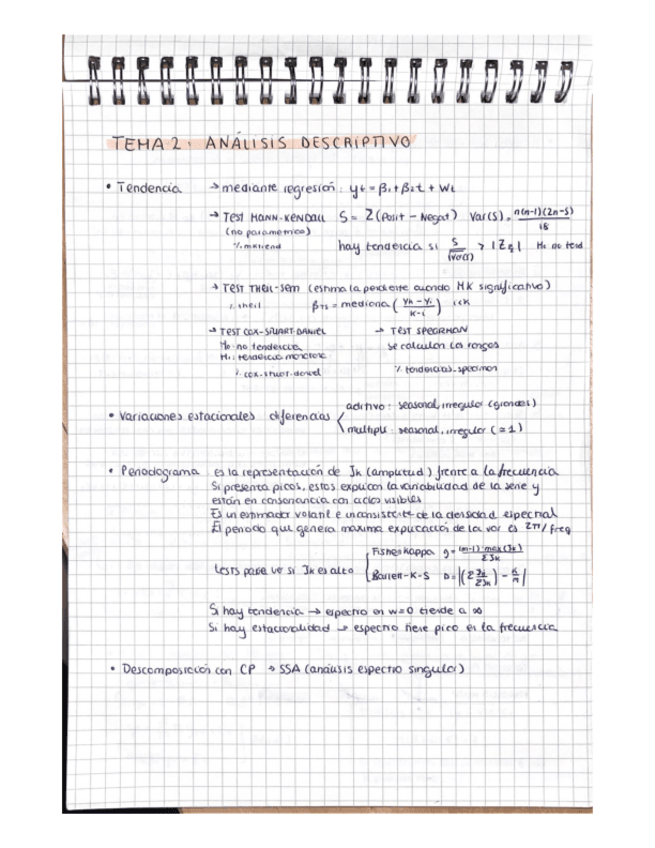 TEMA 2: ANÁLISIS DESCRIPTIVO
• Tendencia → mediante regresión: yt = β1+β2t + Wt
→ TEST MANN-KENDALL S = Σ(Posit - Negat) Var(S) = n(n-1)(2n-5)/18
(no parametrico)
%mktrend hay tendencia si S/√Var(S) > |Zα| H0 no tend
→ TEST THEIL-SEM (estima la pendiente cuando MK significativo)
%theil βTS = mediana (Yk-Yi / K-i) i<K
→ TEST COX-STUART-DANIEL → TEST SPEARMAN
H0: no tendencia se calculan los rangos
H1: tendencia monotona
%cox-stuart-daniel % tendencias-spearman
• Variaciones estacionales diferencias
aditivo: seasonal, irregular (grandes)
multipli: seasonal, irregular (≃1)
• Periodograma es la representación de Jk (amplitud) frente a la frecuencia
Si presenta picos, estos explican la variabilidad de la serie y
están en consonancia con ciclos visibles
Es un estimador volatil e inconsistente de la densidad espectral
El periodo que genera maxima explicación de la var es 2π/freq
Fisher Kappa g = (m-1)·max(Jk) / ΣJk
tests para ver si Jk es alto
Barlett-K-S D = |(Σ Jk/ΣJk) - K/m|
Si hay tendencia → espectro en w=0 tiende a ∞
Si hay estacionalidad → espectro tiene pico en la frecuencia
• Descomposición con CP → SSA (análisis espectro singular)